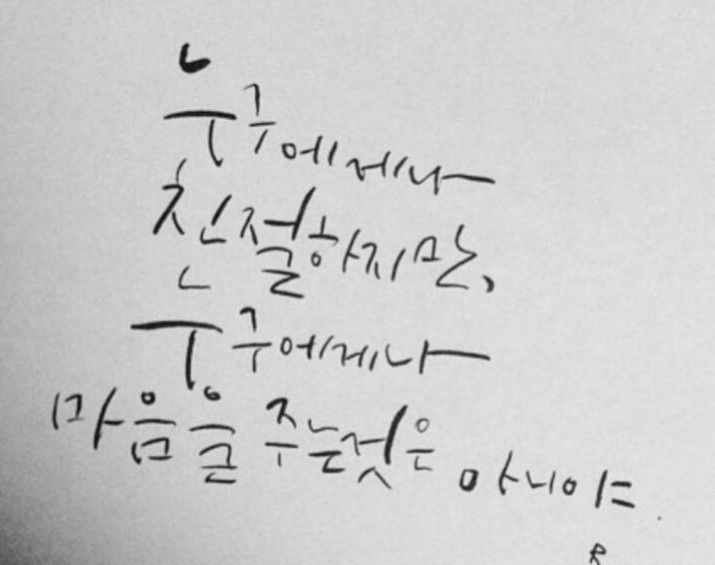 누구에게나
친절하지만,
누구에게나
마음을 주는것은 아니야.